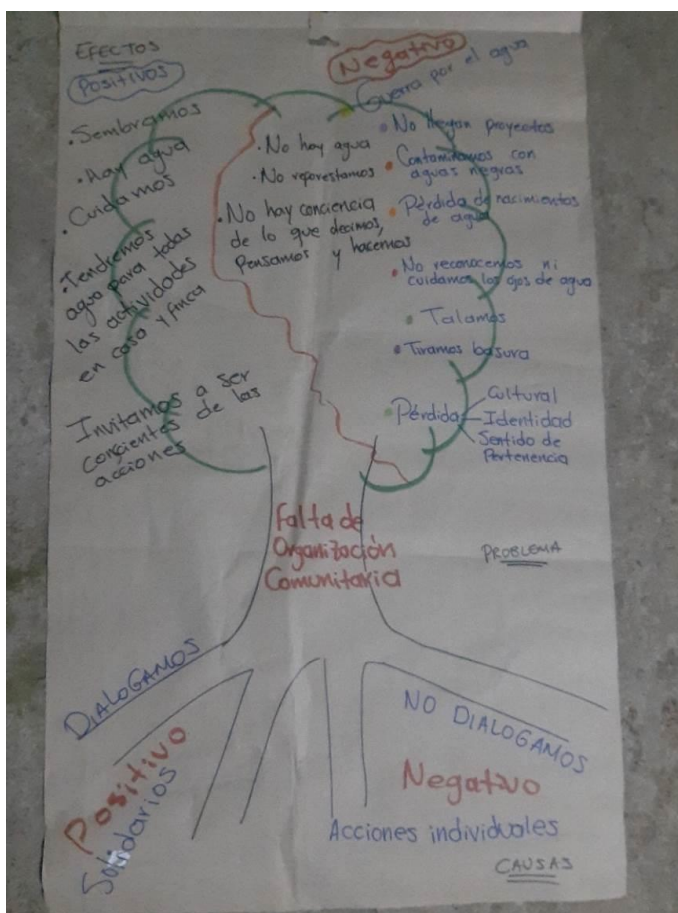 EFECTOS
POSITIVOS
• Sembramos
• Hay agua
• Cuidamos
• Tendremos
agua para todas
las actividades
en casa y finca
Invitamos a ser
conscientes de las
acciones
Negativo
Guerra por el agua
• No hay agua
• No reforestamos
• No hay conciencia
de lo que decimos,
pensamos y hacemos
• No llegan proyectos
• Contaminamos con
aguas negras
• Pérdida de nacimientos
de agua
• No reconocemos ni
cuidamos los ojos de agua
• Talamos
• Tiramos basura
• Pérdida
Cultural
Identidad
Sentido de
Pertenencia
Falta de
Organización
Comunitaria
PROBLEMA
DIALOGAMOS
Positivo
Solidarios
NO DIALOGAMOS
Negativo
Acciones individuales
CAUSAS